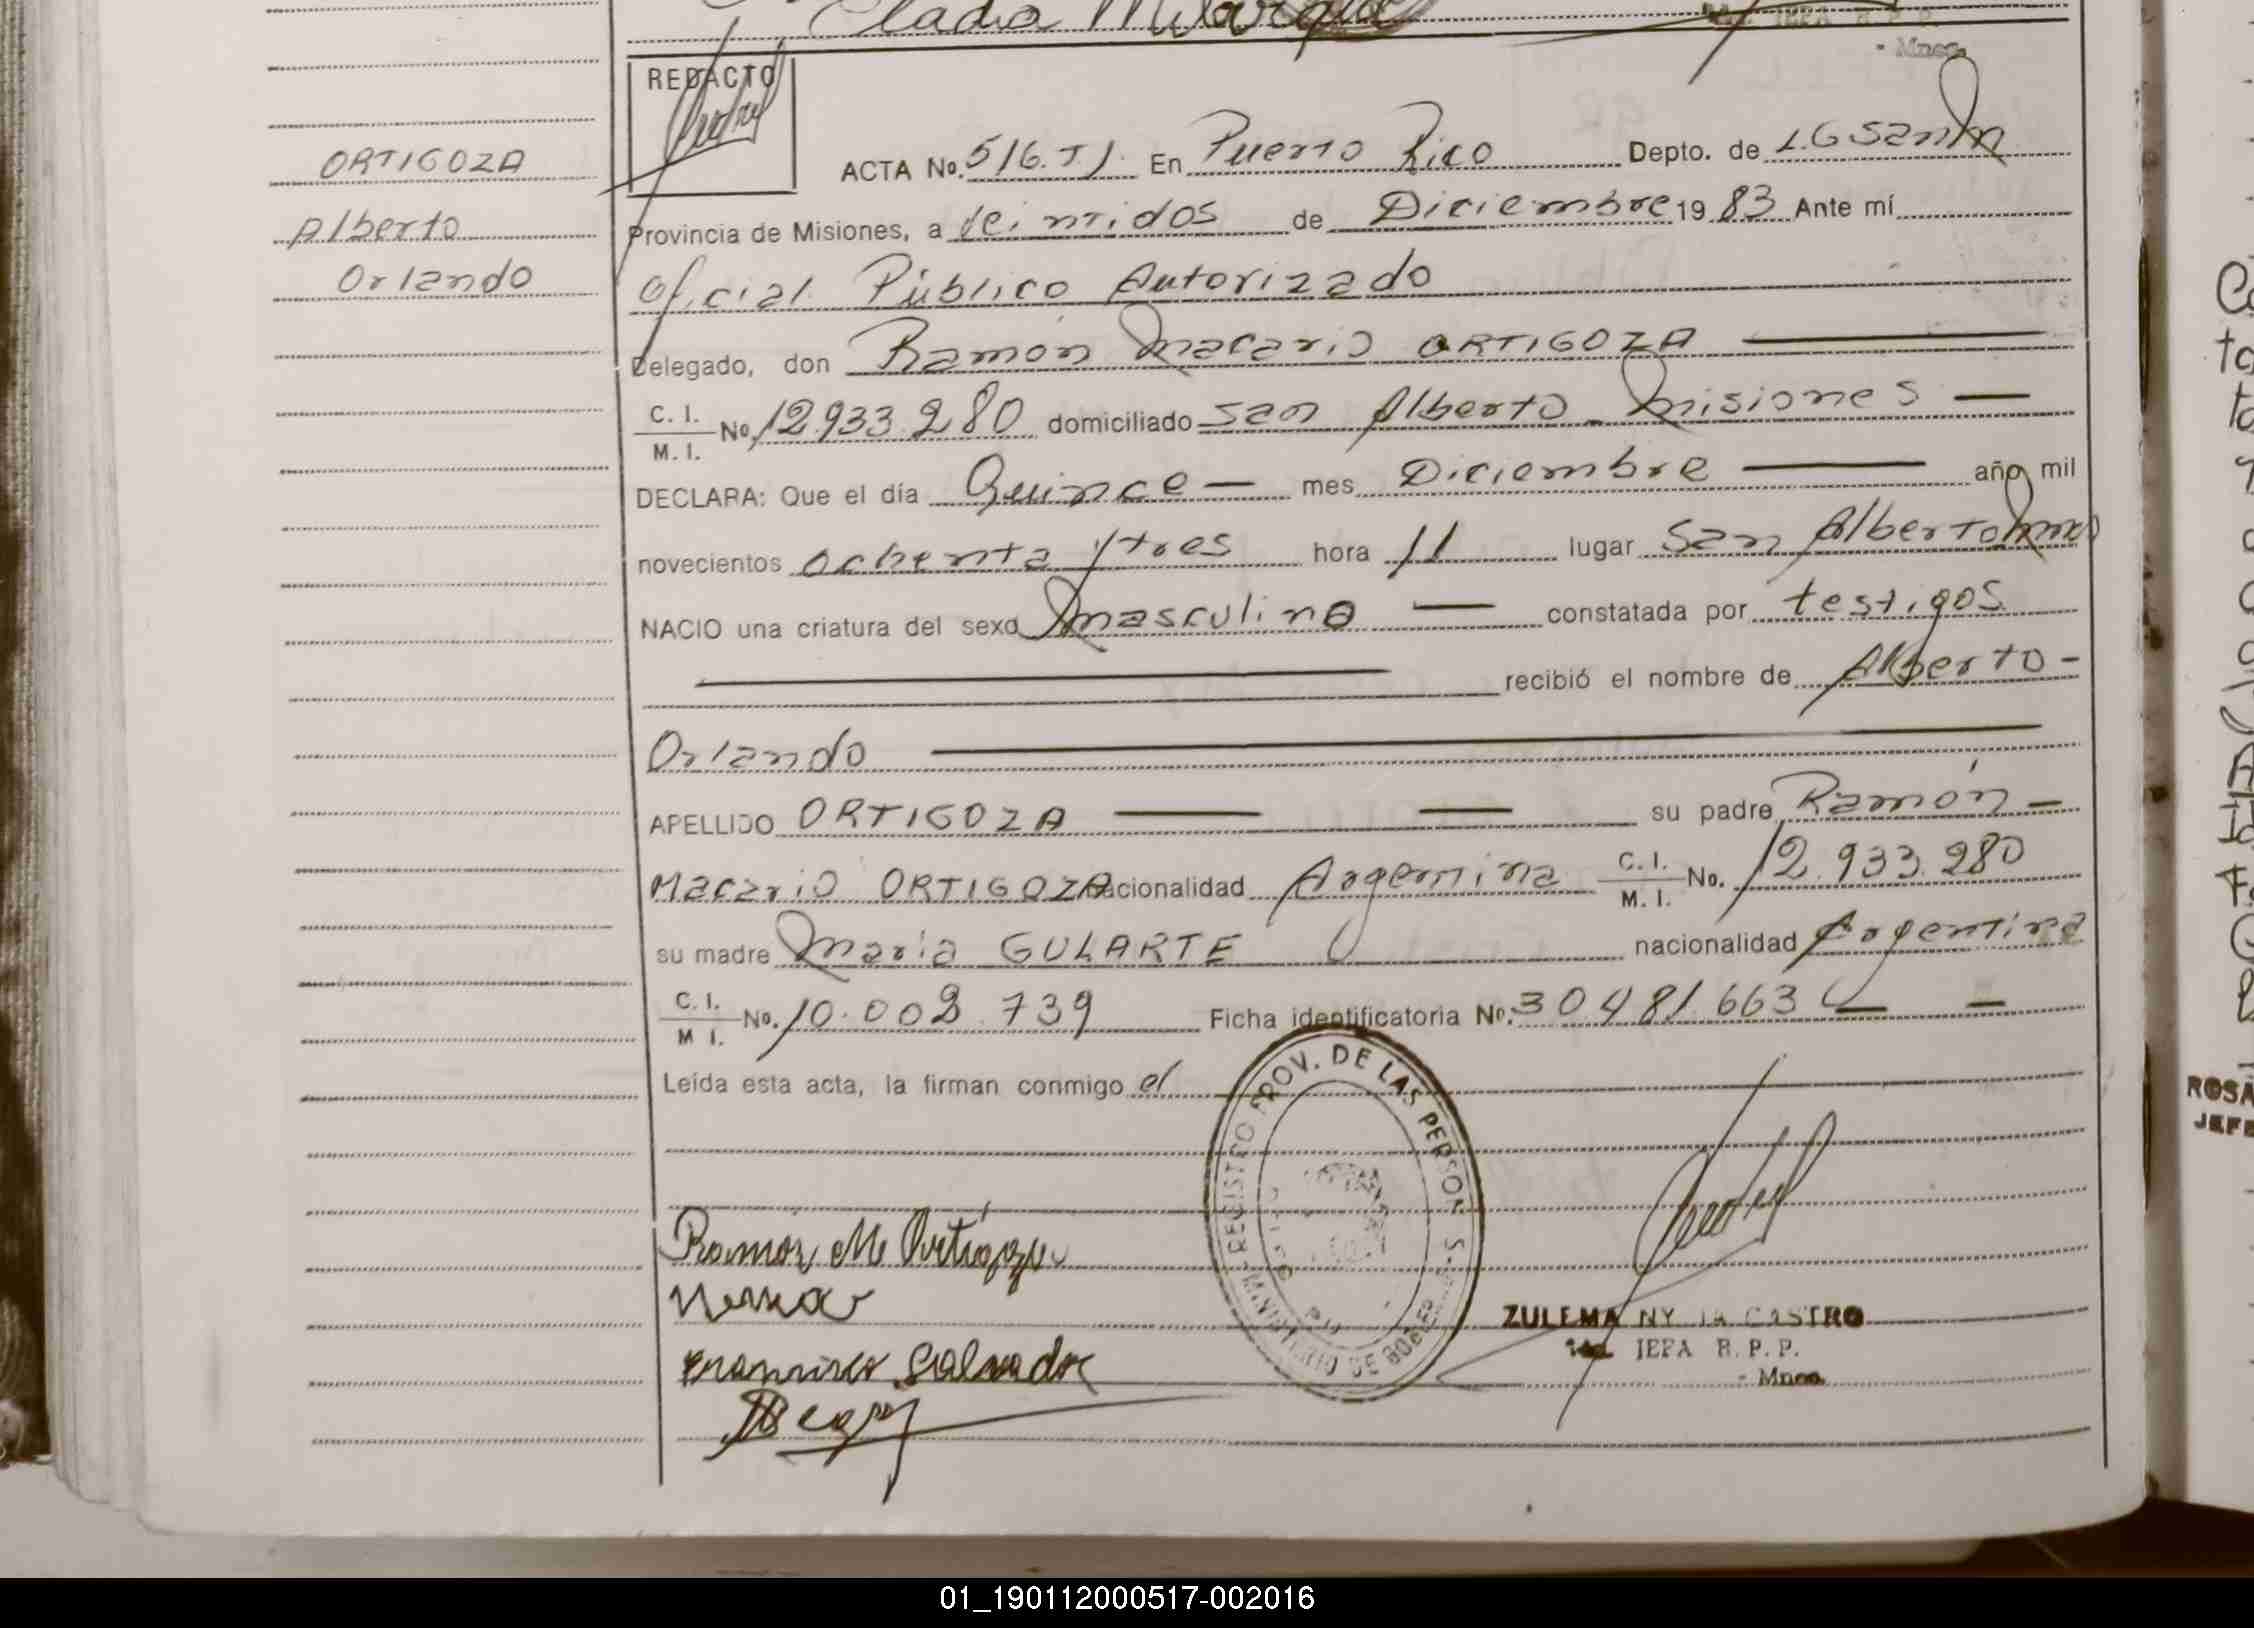 JEFA R. P. P.
- Mnes.
REDACTO
ORTIGOZA
Alberto
Orlando
ACTA No. 516. T). En Puerto Rico Depto. de L. G San M
Provincia de Misiones, a Veintidos de Diciembre 19 83 Ante mí
Oficial Público Autorizado
Delegado, don Ramón Macario ORTIGOZA
C. I. / M. I. No. 12.933.280 domiciliado San Alberto Misiones
DECLARA: Que el día Quince mes Diciembre año mil
novecientos ochenta y tres hora 11 lugar San Alberto Mnes
NACIO una criatura del sexo masculino constatada por testigos
recibió el nombre de Alberto
Orlando
APELLIDO ORTIGOZA su padre Ramón
Macario ORTIGOZA nacionalidad Argentina C. I. / M. I. No. 12.933.280
su madre Maria GULARTE nacionalidad Argentina
C. I. / M I. No. 10.002.739 Ficha identificatoria No. 30.481.663
Leída esta acta, la firman conmigo el
REGISTRO PROV. DE LAS PERSONAS - MINISTERIO DE GOBIERNO
Ramón M Ortigoza
Francisco Salvador
ZULEMA NY CASTRO
JEFA R. P. P.
- Mnes.
ROSA
JEFE
01_190112000517-002016